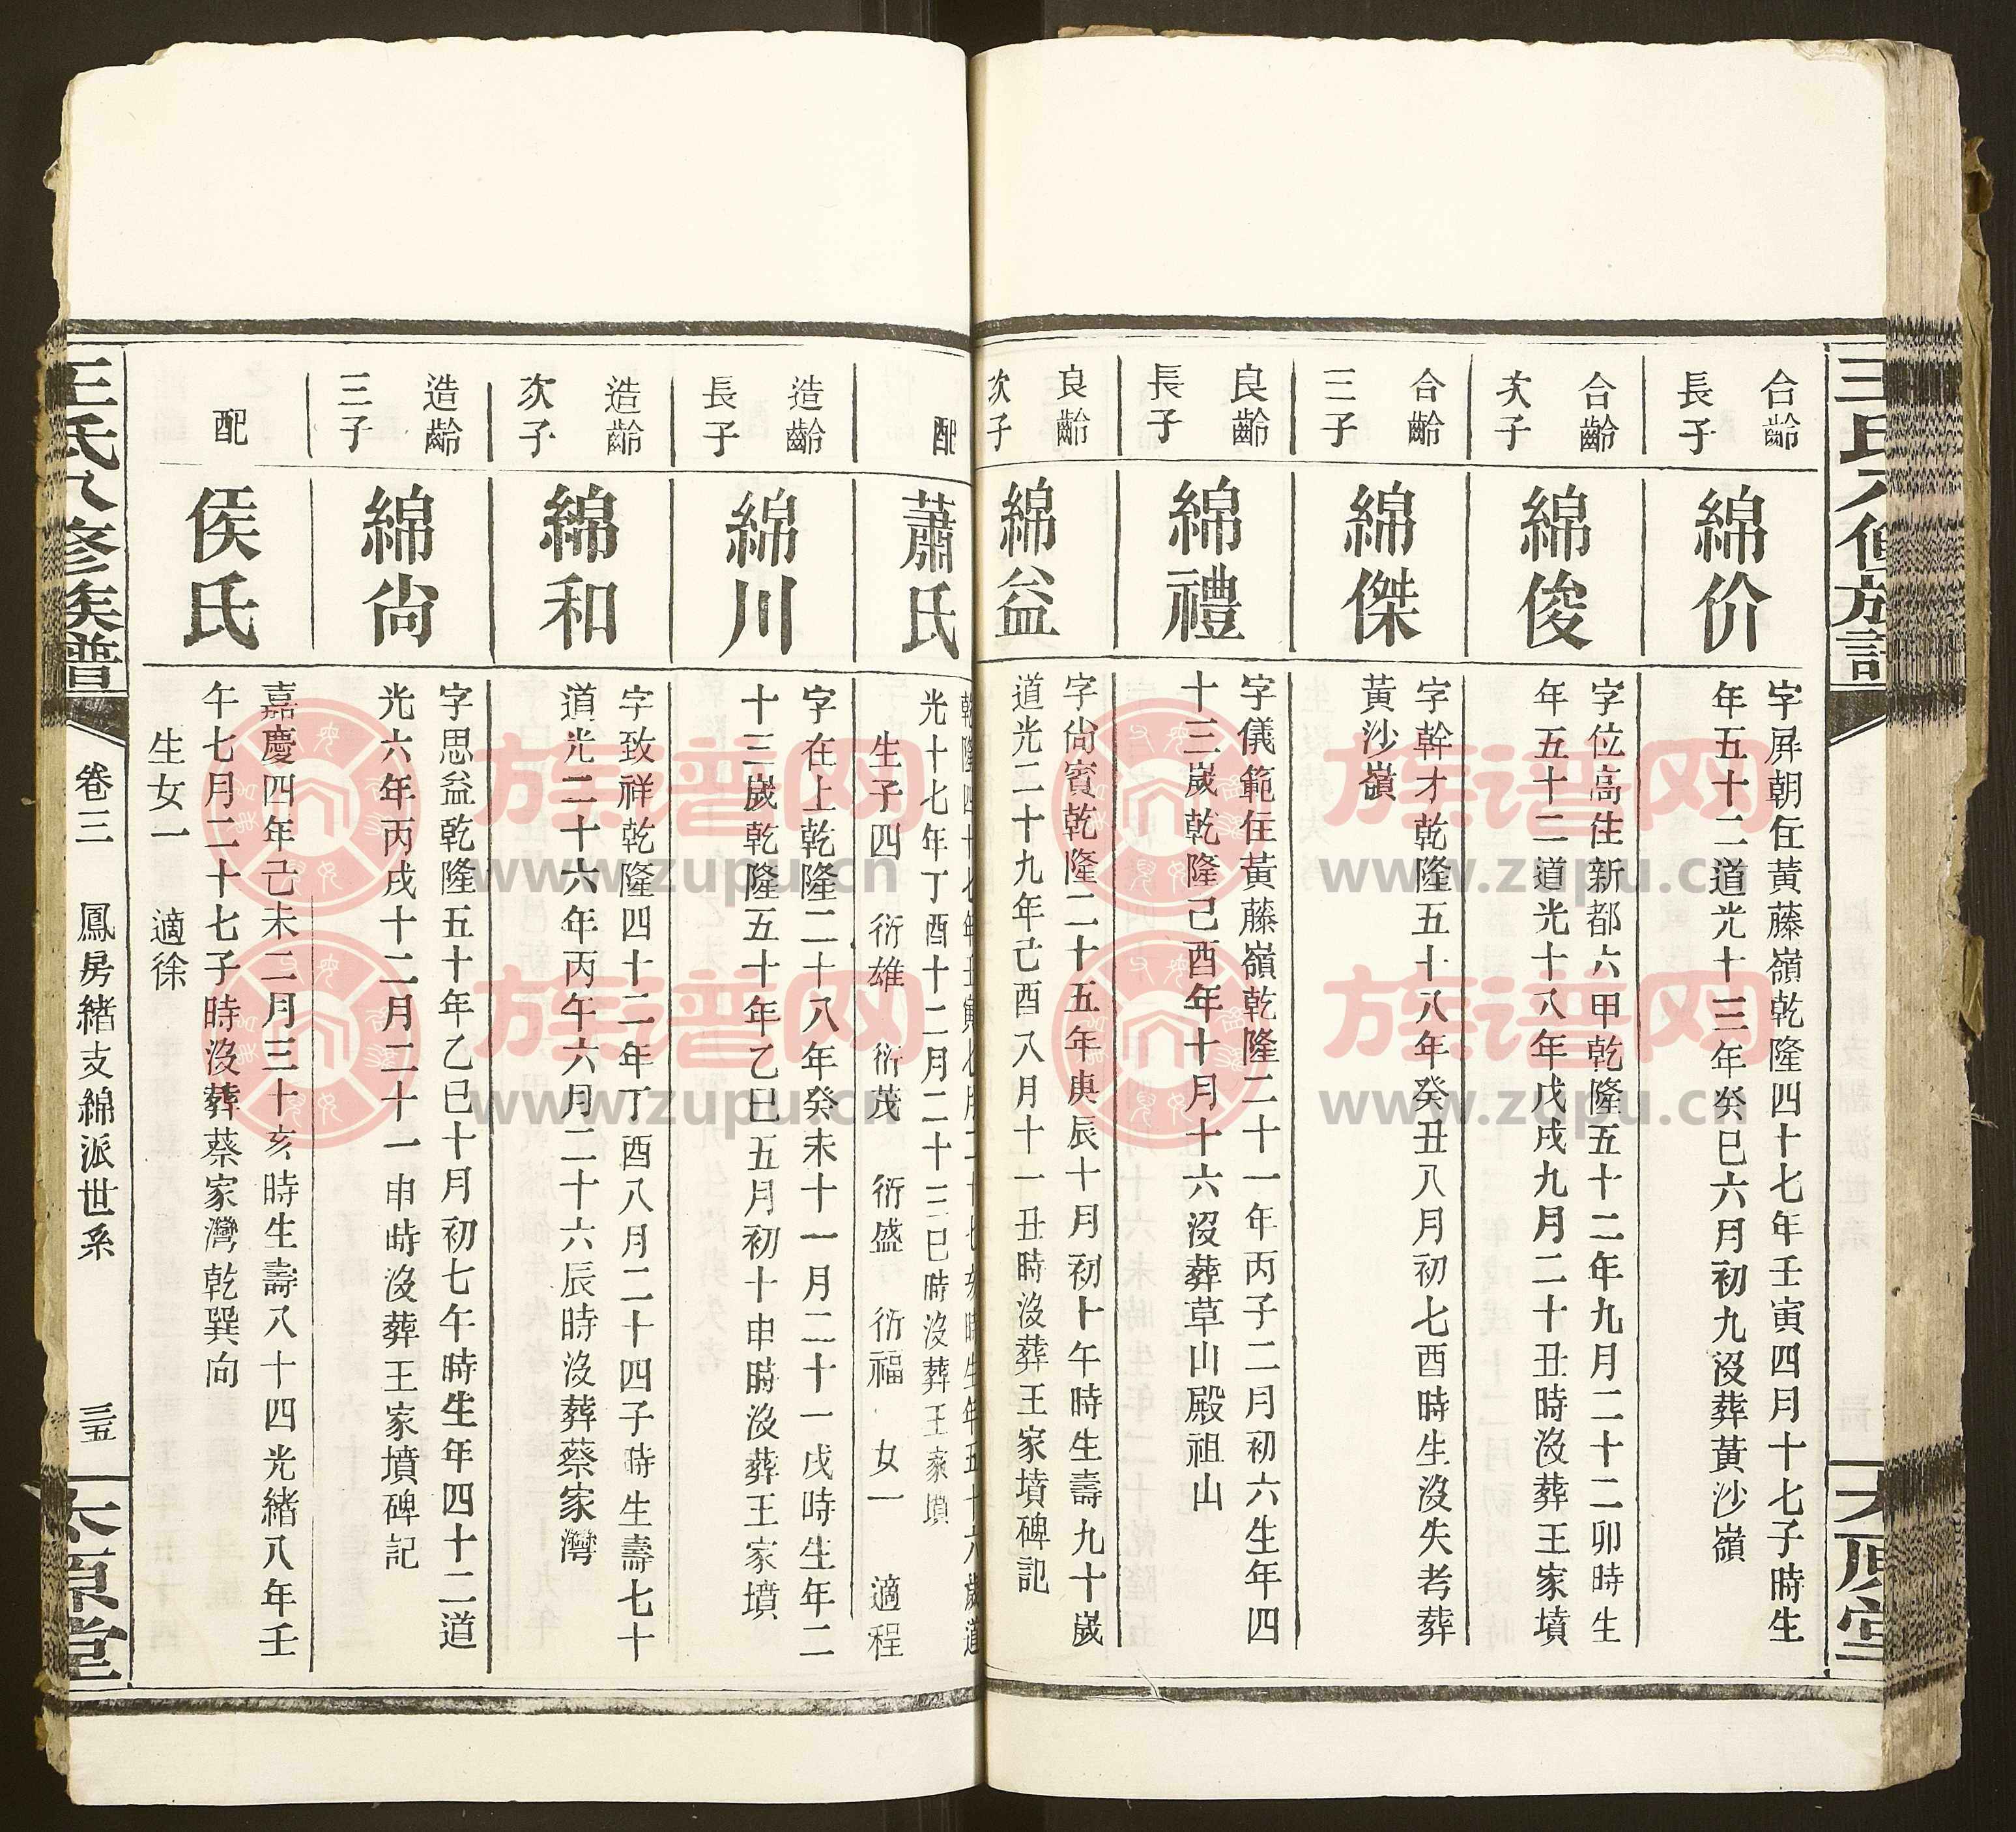 合齡
長子
綿价
字屏朝住黃藤嶺乾隆四十七年壬寅四月十七子時生
年五十二道光十三年癸巳六月初九沒葬黃沙嶺
合齡
次子
綿俊
字位高住新都六甲乾隆五十二年九月二十二卯時生
年五十二道光十八年戊戌九月二十丑時沒葬王家墳
合齡
三子
綿傑
字幹才乾隆五十八年癸丑八月初七酉時生沒失考葬
黃沙嶺
良齡
長子
綿禮
字儀範住黃藤嶺乾隆二十一年丙子二月初六生年四
十三歲乾隆己酉年十月十六沒葬草山殿祖山
良齡
次子
綿益
字尙賓乾隆二十五年庚辰十月初十午時生壽九十歲
道光二十九年己酉八月十一丑時沒葬王家墳碑記
配
蕭氏
乾隆四十七年壬寅七月二十七亥時生年五十六歲道
光十七年丁酉十二月二十三巳時沒葬王家墳
生子四 衍雄 衍茂 衍盛 衍福 女一 適程
造齡
長子
綿川
字在上乾隆二十八年癸未十一月二十一戌時生年二
十三歲乾隆五十年乙巳五月初十申時沒葬王家墳
造齡
次子
綿和
字致祥乾隆四十二年丁酉八月二十四子時生壽七十
道光二十六年丙午六月二十六辰時沒葬蔡家灣
造齡
三子
綿尙
字思益乾隆五十年乙巳十月初七午時生年四十二道
光六年丙戌十二月二十一申時沒葬王家墳碑記
配
侯氏
嘉慶四年己未二月三十亥時生壽八十四光緒八年壬
午七月二十七子時沒葬蔡家灣乾巽向
生女一 適徐
王氏八修族譜
卷三 鳳房緒支綿派世系
三五
太原堂
族谱网
www.zupu.cn
族谱网
www.zupu.cn
族谱网
www.zupu.cn
族谱网
www.zupu.cn